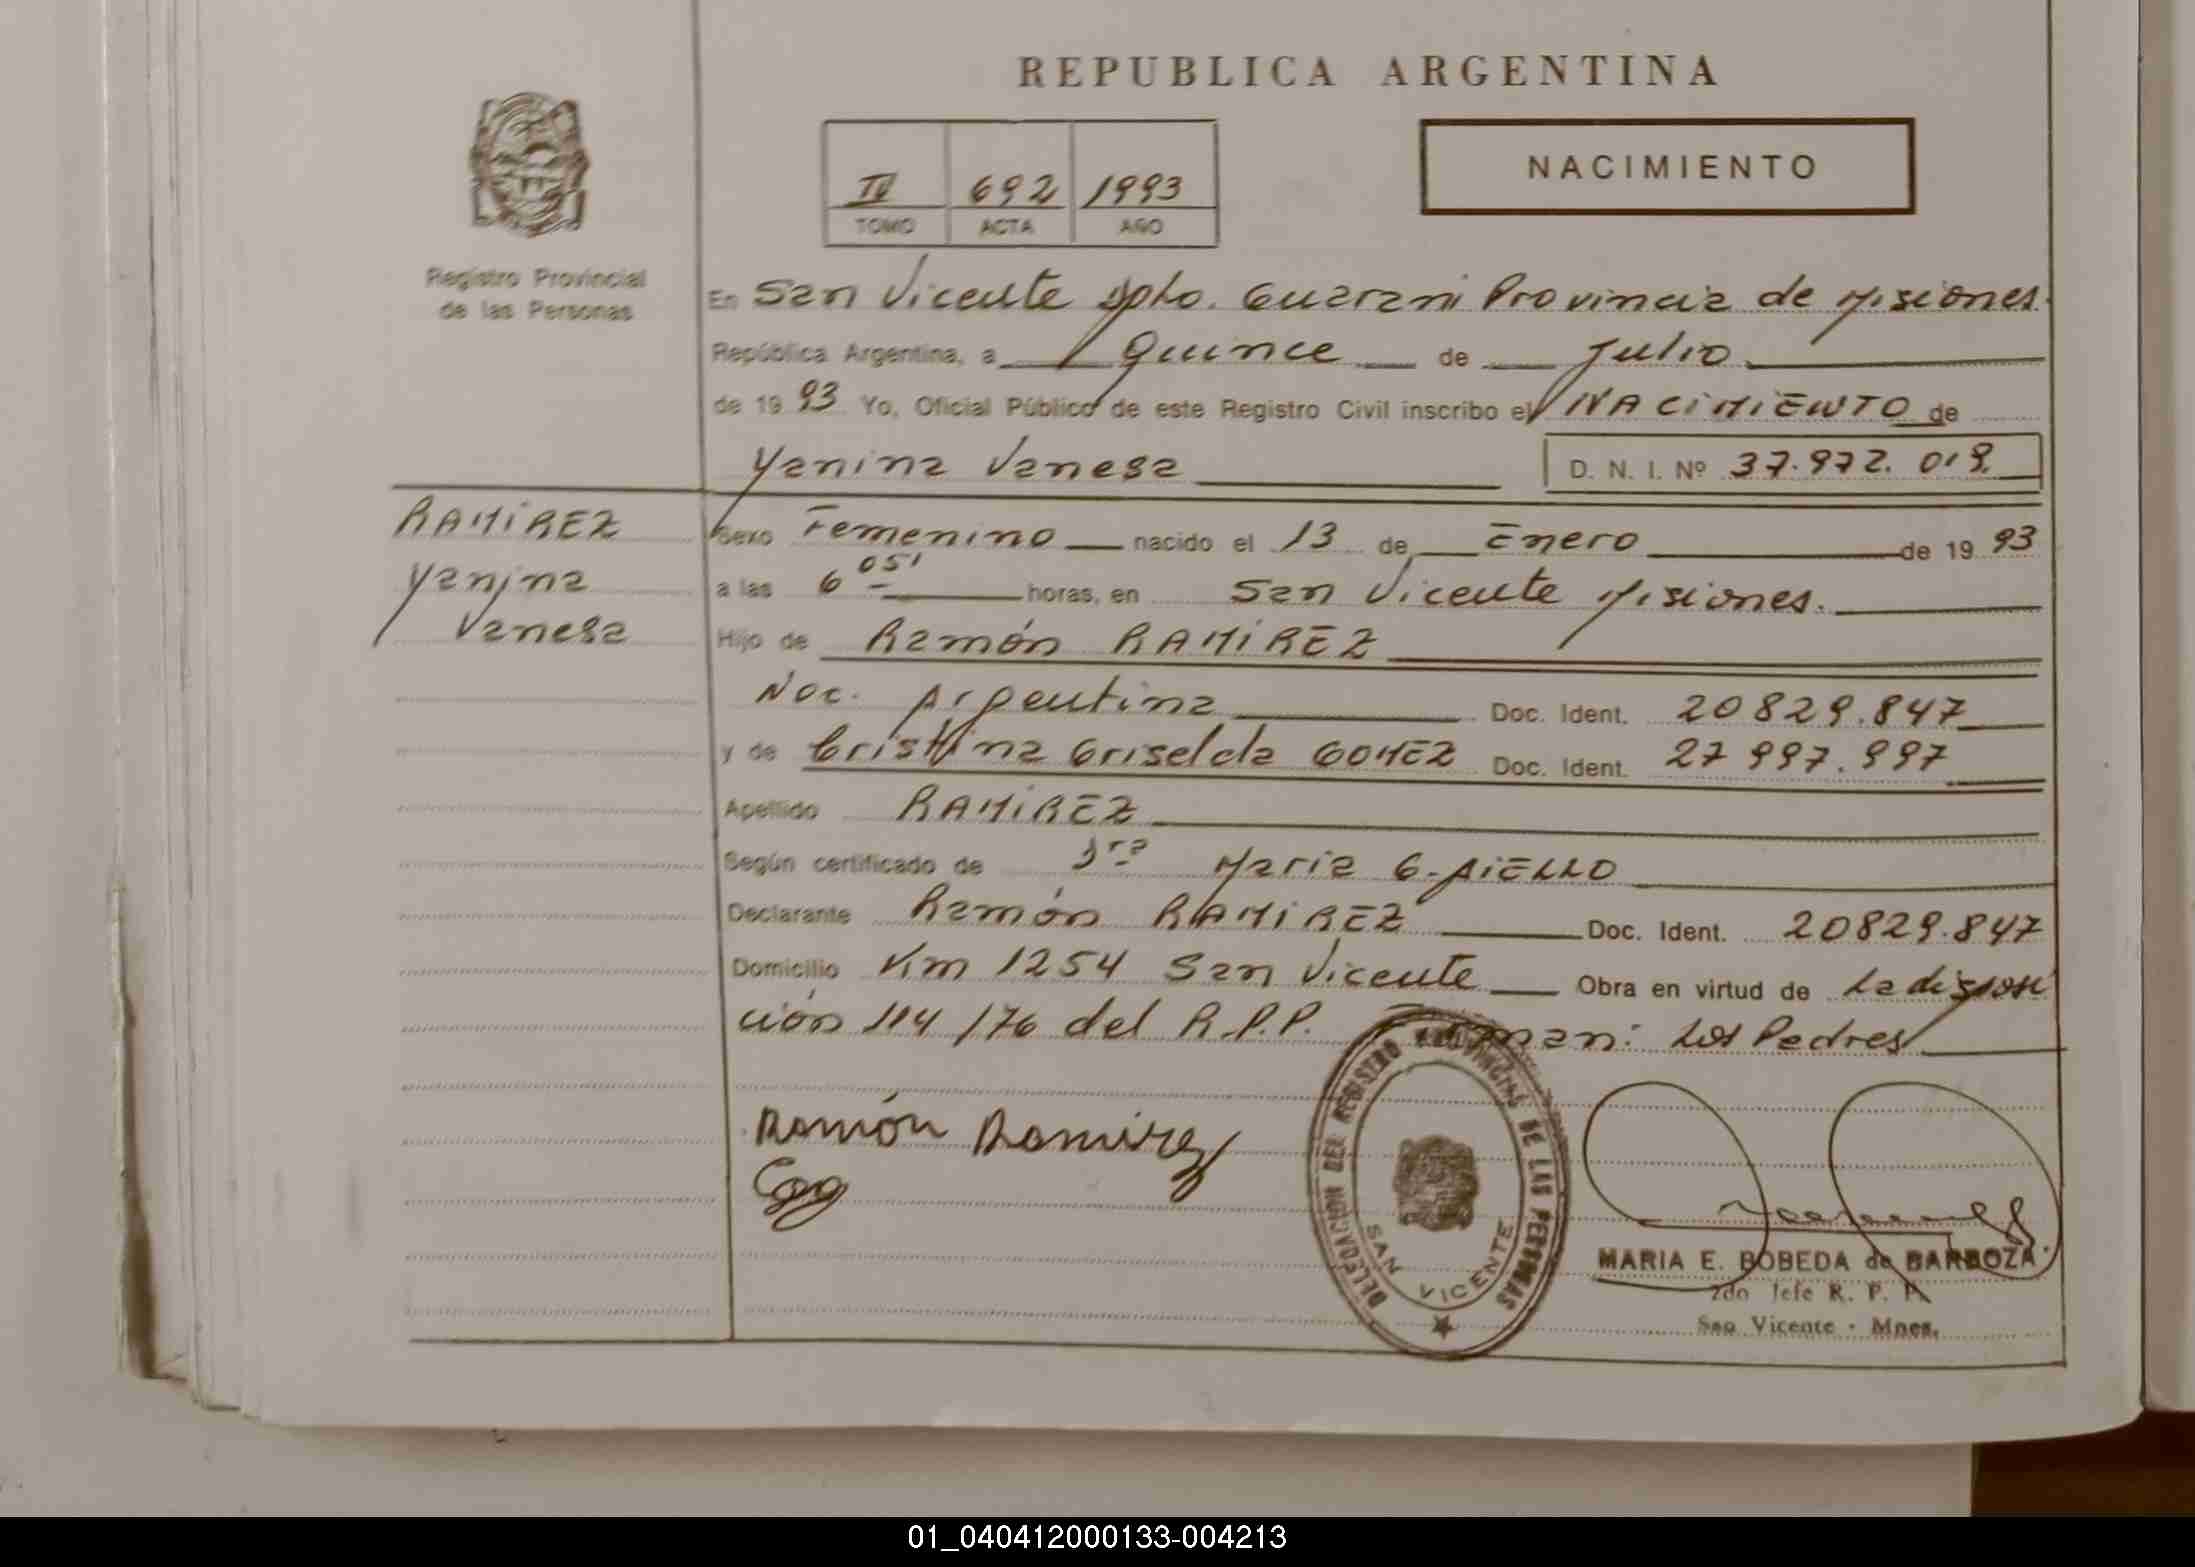 REPUBLICA ARGENTINA
NACIMIENTO
IV 692 1993
TOMO ACTA AÑO
Registro Provincial
de las Personas
En San Vicente Dpto. Guarani Provincia de Misiones.
República Argentina, a Quince de Julio
de 1993 Yo, Oficial Público de este Registro Civil inscribo el NACIMIENTO de
Yanina Vanesa D. N. I. Nº 37.972.019.
RAMIREZ
Yanina
Vanesa
Sexo Femenino nacido el 13 de Enero de 1993
a las 6 05' horas, en San Vicente Misiones.
Hijo de Ramón RAMIREZ
Nac. Argentina Doc. Ident. 20829.847
y de Cristina Griselda GOMEZ Doc. Ident. 27 997.997
Apellido RAMIREZ
Según certificado de Dra Maria G. AIELLO
Declarante Ramón RAMIREZ Doc. Ident. 20829.847
Domicilio Km 1254 San Vicente Obra en virtud de La disposi
ción 114/76 del R.P.P. Firman: Los Padres
Ramón Ramirez
DELEGACION DEL REGISTRO PROVINCIAL DE LAS PERSONAS
SAN VICENTE
MARIA E. BOBEDA de BARBOZA
2do Jefe R. P. P.
San Vicente - Mnes.
01_040412000133-004213